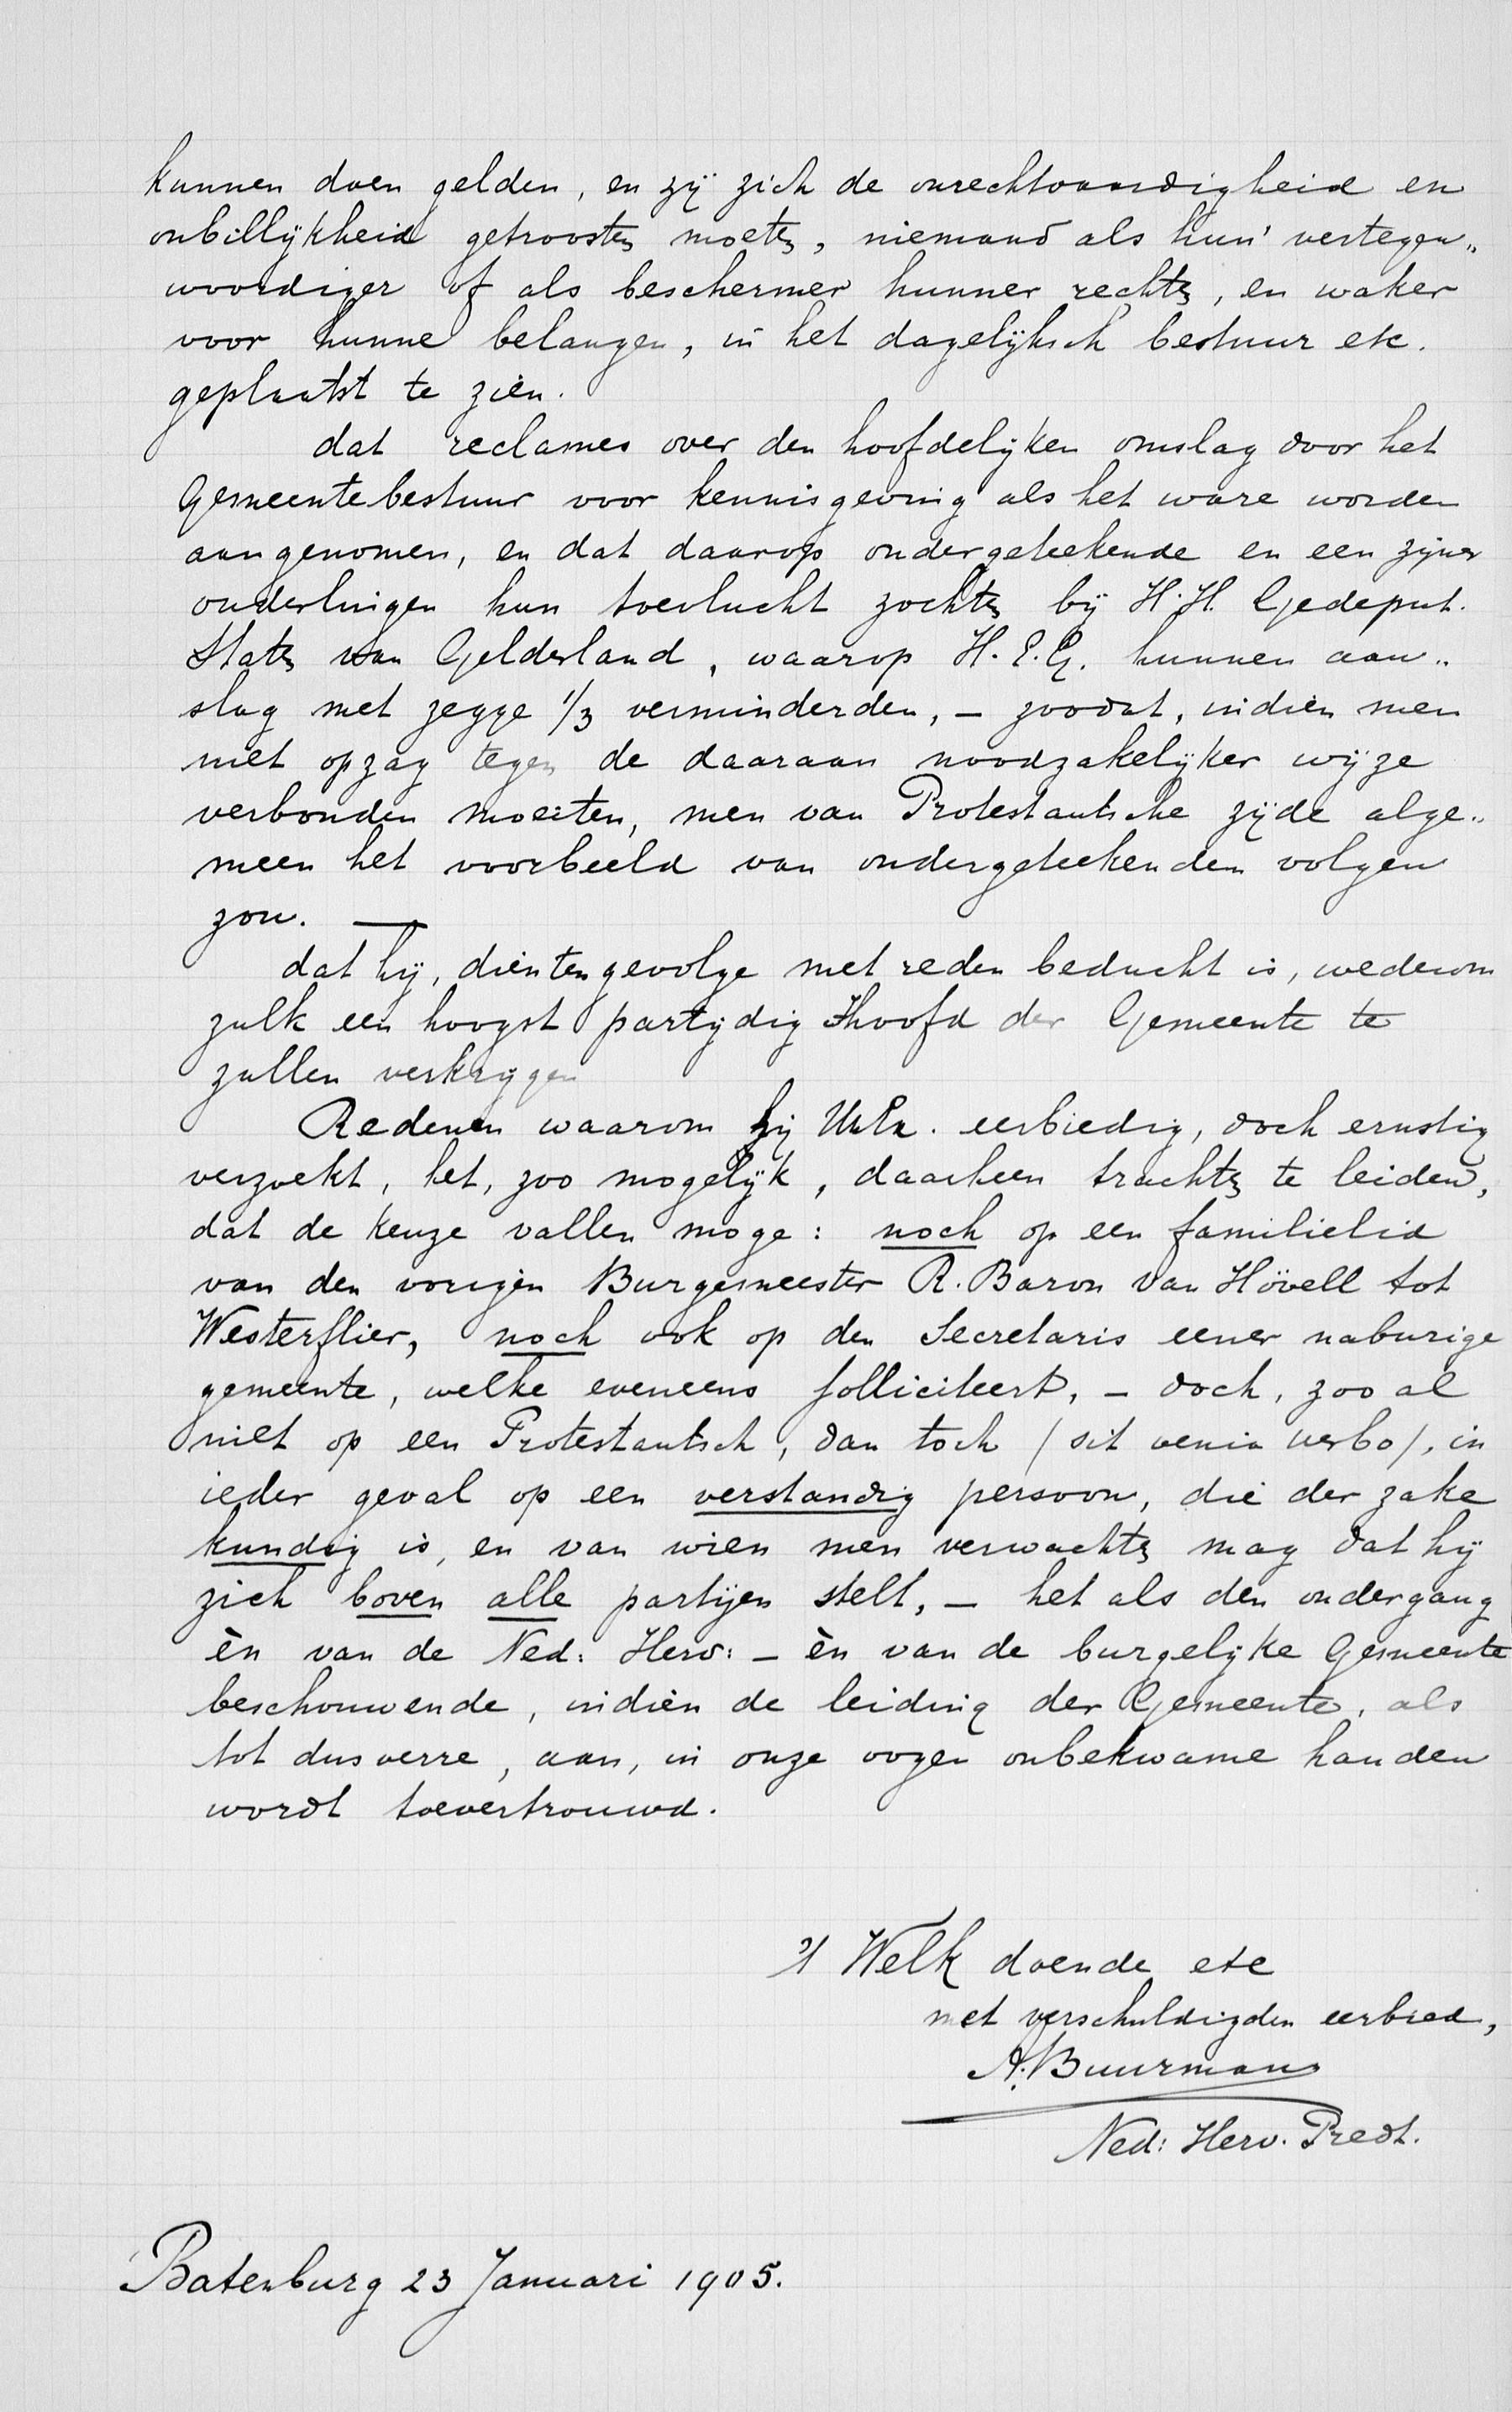 kunnen doen gelden, en zij zich de onrechtvaardigheid en
onbillijkheid getroosten moeten, niemand als hun' vertegen„
woordiger of als beschermer hunner rechten, en waker
voor hunne belangen, in het dagelijksch bestuur etc.
geplaatst te zien.
dat reclames over den hoofdelijken omslag door het
Gemeentebestuur voor kennisgeving als het ware worden
aangenomen, en dat daarop ondergeteekende en een zijner
ouderlingen hun toevlucht zochten bij H.H. Gedeput.
Staten van Gelderland, waarop H.E.G. hunnen aan„
slag met zegge 1/3 verminderden, – zoodat, indien men
niet opzag tegen de daaraan noodzakelijker wijze
verbonden moeiten, men van Protestantsche zijde alge„
meen het voorbeeld van ondergeteekenden volgen
zou. —
dat hij, dientengevolge met reden beducht is, wederom
zulk een hoogst partijdig Hoofd der Gemeente te
zullen verkrijgen
Redenen waarom hij UwEx. eerbiedig, doch ernstig
verzoekt, het, zoo mogelijk, daarheen trachten te leiden,
dat de keuze vallen moge: noch op een familielid
van den vorigen Burgemeester R. Baron van Hövell tot
Westerflier, noch ook op den Secretaris eener naburige
gemeente, welke eveneens solliciteert, – doch, zoo al
niet op een Protestantsch, dan toch (sit venia verbo), in
ieder geval op een verstandig persoon, die der zake
kundig is, en van wien men verwachten mag dat hij
zich boven alle partijen stelt, – het als den ondergang
èn van de Ned: Herv: – èn van de burgelijke Gemeente
beschouwende, indien de leiding der Gemeente, als
tot dusverre, aan, in onze oogen onbekwame handen
wordt toevertrouwd.
't Welk doende etc
met verschuldigden eerbied,
A. Buurman
Ned: Herv. Predt.
Batenburg 23 Januari 1905.